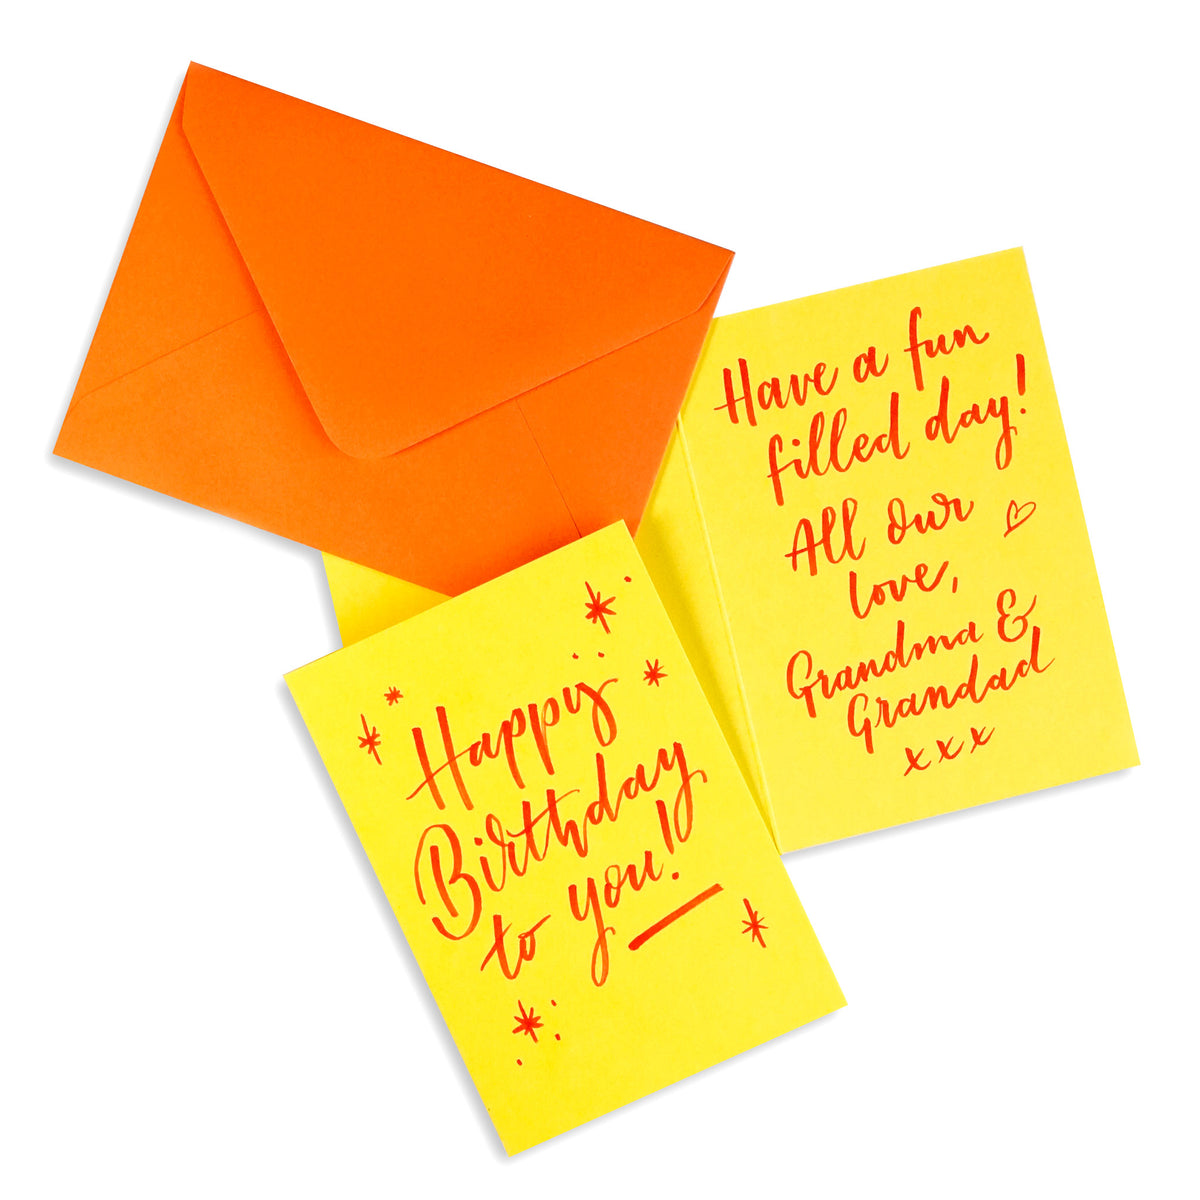 Happy
Birthday
to you!
Have a fun
filled day!
All our
love,
Grandma &
Grandad
xxx